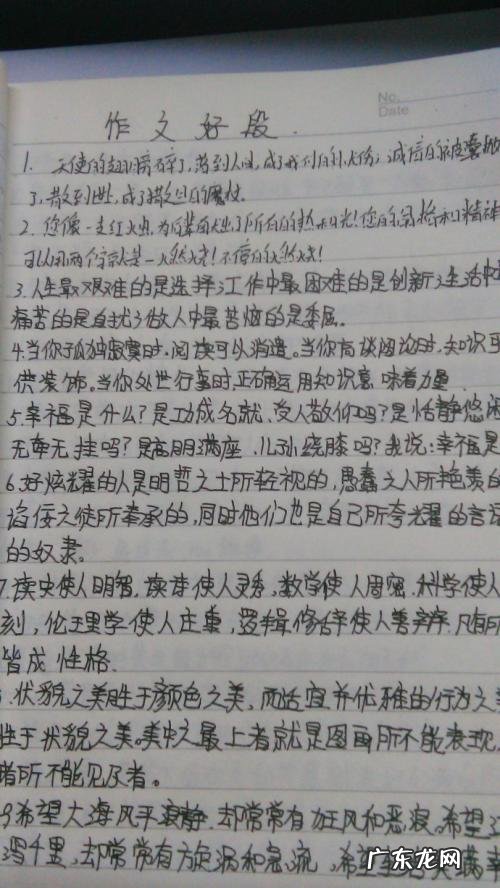 No.
Date
作文好段.
1. 天使的翅膀碎了,落到人间,成了我们的忧伤;诚信的
了,散到世,成了撒旦的魔杖。
2. 您像一支红火烛,为后辈献出了所有的热和光!您的品格和精神
可以用两个字就是—燃烧!不停的燃烧!
3.人生最艰难的是选择;工作中最困难的是创新;生活中
痛苦的是自扰;做人中最苦恼的是委屈。
4.当你孤独寂寞时,阅读可以消遣。当你高谈阔论时,知识可
供装饰。当你处世行事时,正确运用知识意味着力量.
5.幸福是什么?是功成名就、受人敬仰吗?是恬静悠闲
无牵无挂吗?是高朋满座、儿孙绕膝吗?我说:幸福是
6.好炫耀的人是明哲之士所轻视的,愚蠢之人所艳羡的
谄佞之徒所奉承的,同时他们也是自己所夸耀的言
的奴隶。
7.读史使人明智,读诗使人灵秀,数学使人周密,科学使人
刻,伦理学使人庄重,逻辑修辞使人善辩.凡有所
皆成性格.
状貌之美胜于颜色之美,而适宜并优雅的行为之美
胜于状貌之美。美中之最上者就是图画所不能表现,
睹所不能见及者。
9.希望大海风平浪静,却常常有狂风和恶浪。希望
泻千里,却常常有旋涡和急流,希望
广东龙网
GDLPW.COM